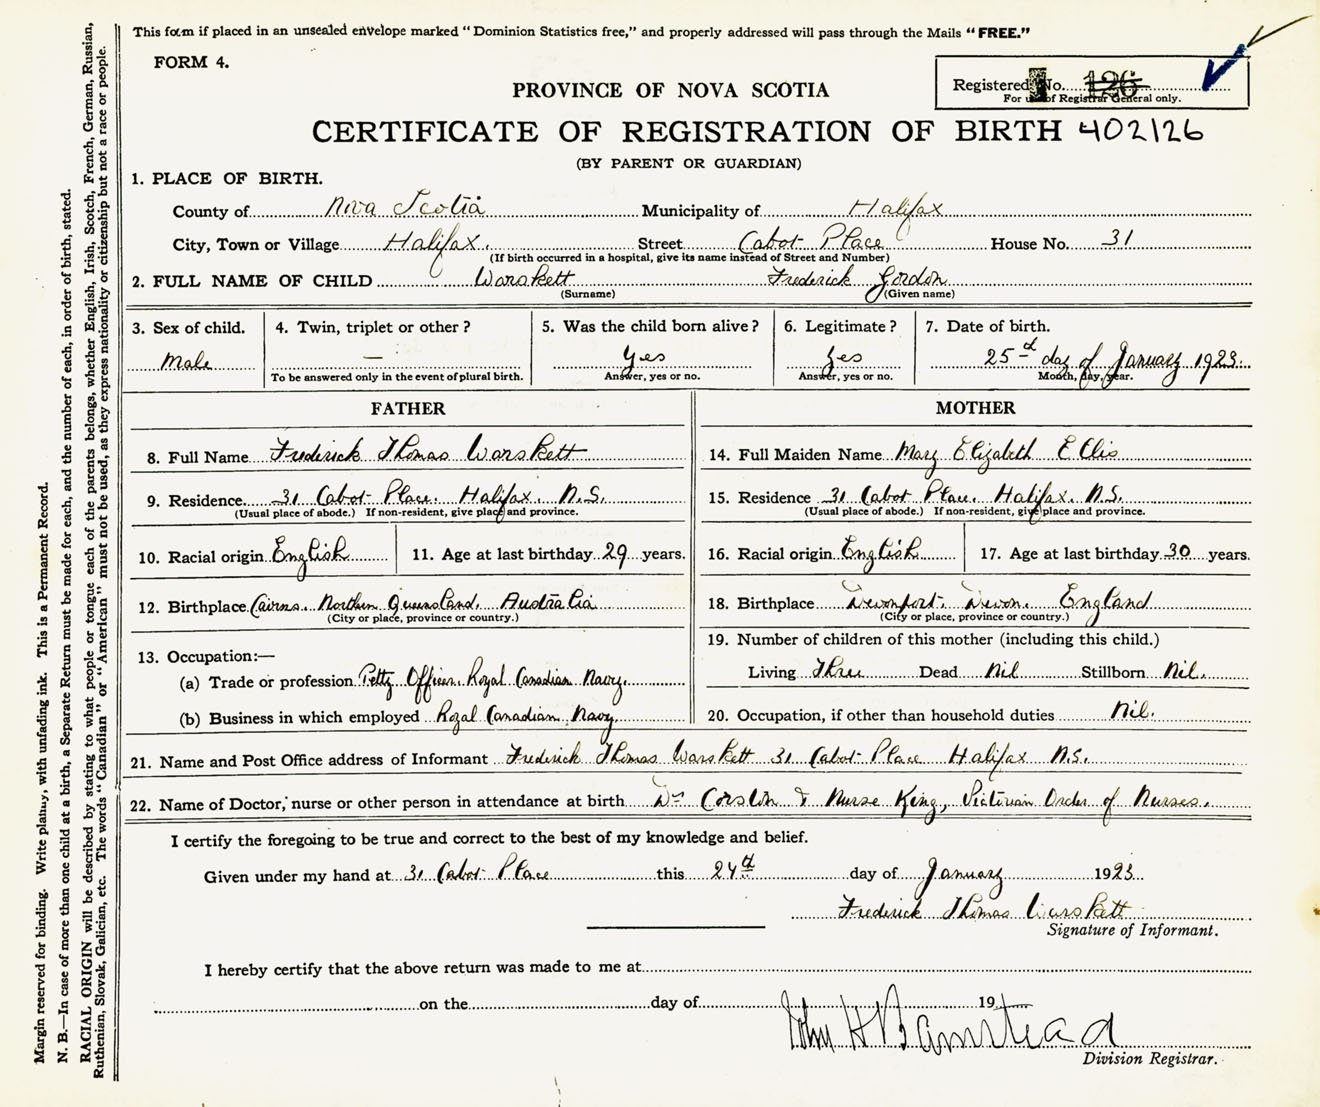 This form if placed in an unsealed envelope marked "Dominion Statistics free," and properly addressed will pass through the Mails "FREE."
FORM 4.
Registered No. 126
For use of Registrar General only.
PROVINCE OF NOVA SCOTIA
CERTIFICATE OF REGISTRATION OF BIRTH 402126
(BY PARENT OR GUARDIAN)
1. PLACE OF BIRTH.
County of Nova Scotia Municipality of Halifax
City, Town or Village Halifax. Street Cabot Place House No. 31
(If birth occurred in a hospital, give its name instead of Street and Number)
2. FULL NAME OF CHILD Warskett Frederick Gordon
(Surname) (Given name)
3. Sex of child. 4. Twin, triplet or other? 5. Was the child born alive? 6. Legitimate? 7. Date of birth.
Male — Yes Yes 25th day of January 1923.
To be answered only in the event of plural birth. Answer, yes or no. Answer, yes or no. Month, day, year.
FATHER
8. Full Name Frederick Thomas Warskett
9. Residence 31 Cabot Place. Halifax. N.S.
(Usual place of abode.) If non-resident, give place and province.
10. Racial origin English 11. Age at last birthday 29 years.
12. Birthplace Cairns. Northern Queensland. Australia
(City or place, province or country.)
13. Occupation:—
(a) Trade or profession Petty Officer. Royal Canadian Navy.
(b) Business in which employed Royal Canadian Navy
MOTHER
14. Full Maiden Name Mary Elizabeth Ellis
15. Residence 31 Cabot Place. Halifax. N.S.
(Usual place of abode.) If non-resident, give place and province.
16. Racial origin English 17. Age at last birthday 30 years.
18. Birthplace Devonport. Devon. England
(City or place, province or country.)
19. Number of children of this mother (including this child.)
Living Three Dead Nil Stillborn Nil.
20. Occupation, if other than household duties Nil.
21. Name and Post Office address of Informant Frederick Thomas Warskett 31 Cabot Place Halifax N.S.
22. Name of Doctor, nurse or other person in attendance at birth Dr Corston & Nurse King, Victorian Order of Nurses.
I certify the foregoing to be true and correct to the best of my knowledge and belief.
Given under my hand at 31 Cabot Place this 24th day of January 1923
Frederick Thomas Warskett
Signature of Informant.
I hereby certify that the above return was made to me at
on the day of 19
John H Barnstead
Division Registrar.
Margin reserved for binding. Write plainly, with unfading ink. This is a Permanent Record.
N. B.—In case of more than one child at a birth, a Separate Return must be made for each, and the number of each, in order of birth, stated.
RACIAL ORIGIN will be described by stating to what people or tongue each of the parents belongs, whether English, Irish, Scotch, French, German, Russian,
Ruthenian, Slovak, Galician, etc. The words "Canadian" or "American" must not be used, as they express nationality or citizenship but not a race or people.